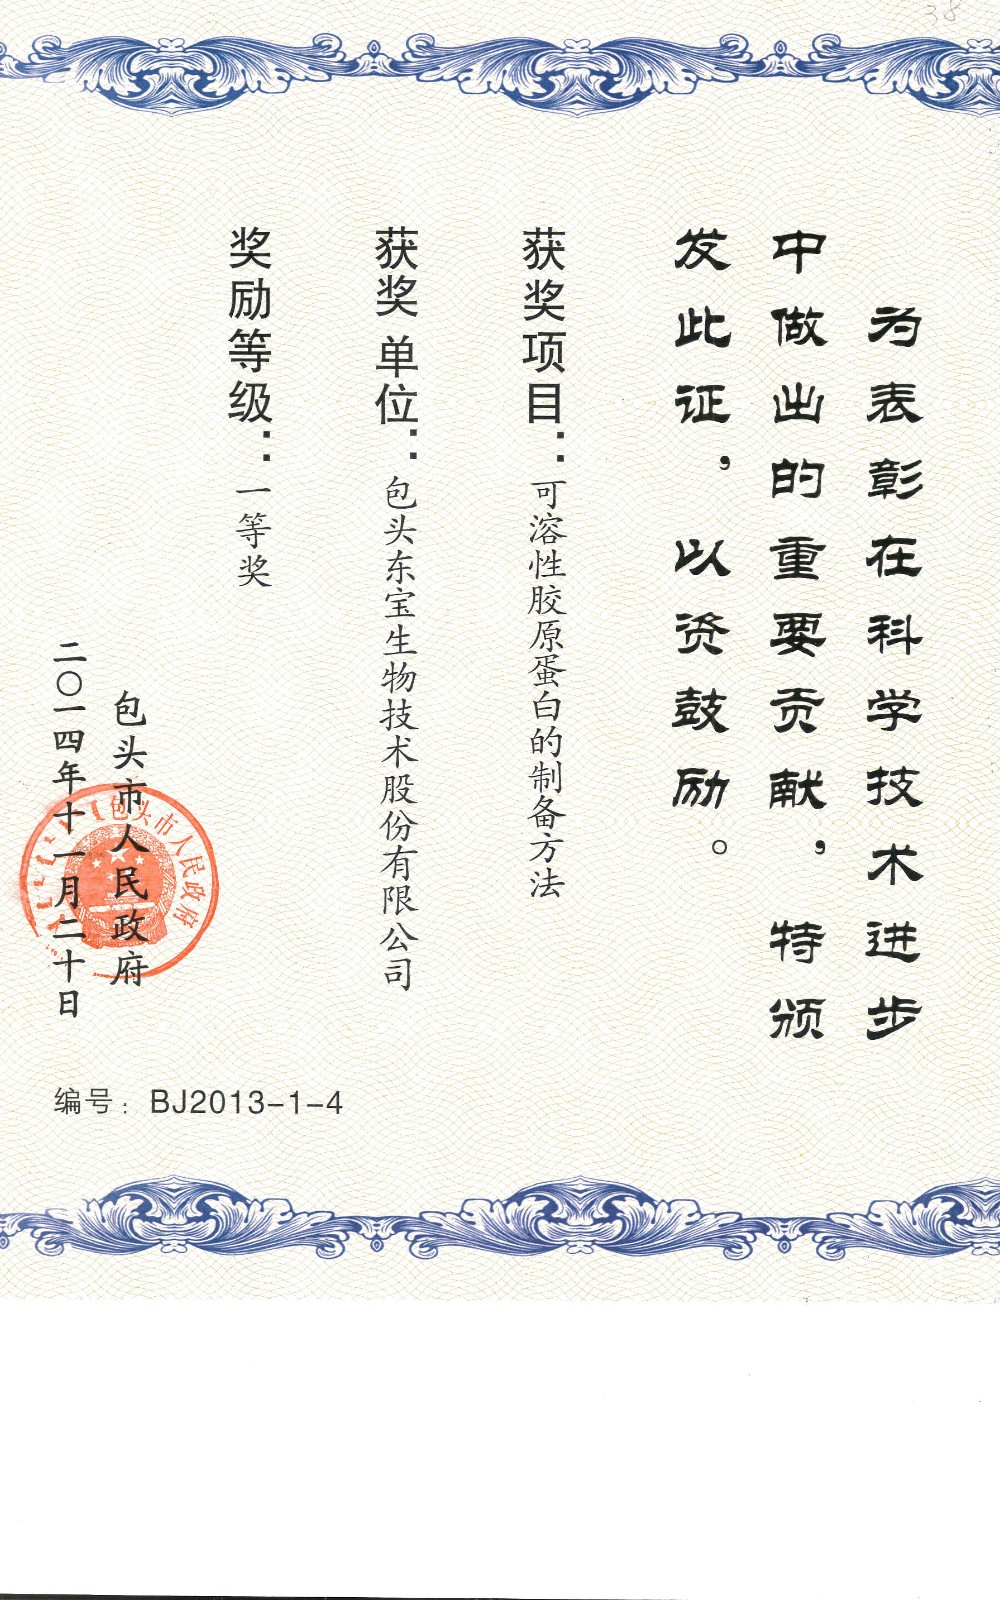 38
为表彰在科学技术进步
中做出的重要贡献，特颁
发此证，以资鼓励。
获奖项目：可溶性胶原蛋白的制备方法
获奖单位：包头东宝生物技术股份有限公司
奖励等级：一等奖
包头市人民政府
二〇一四年十一月二十日
包头市人民政府
编号：BJ2013-1-4